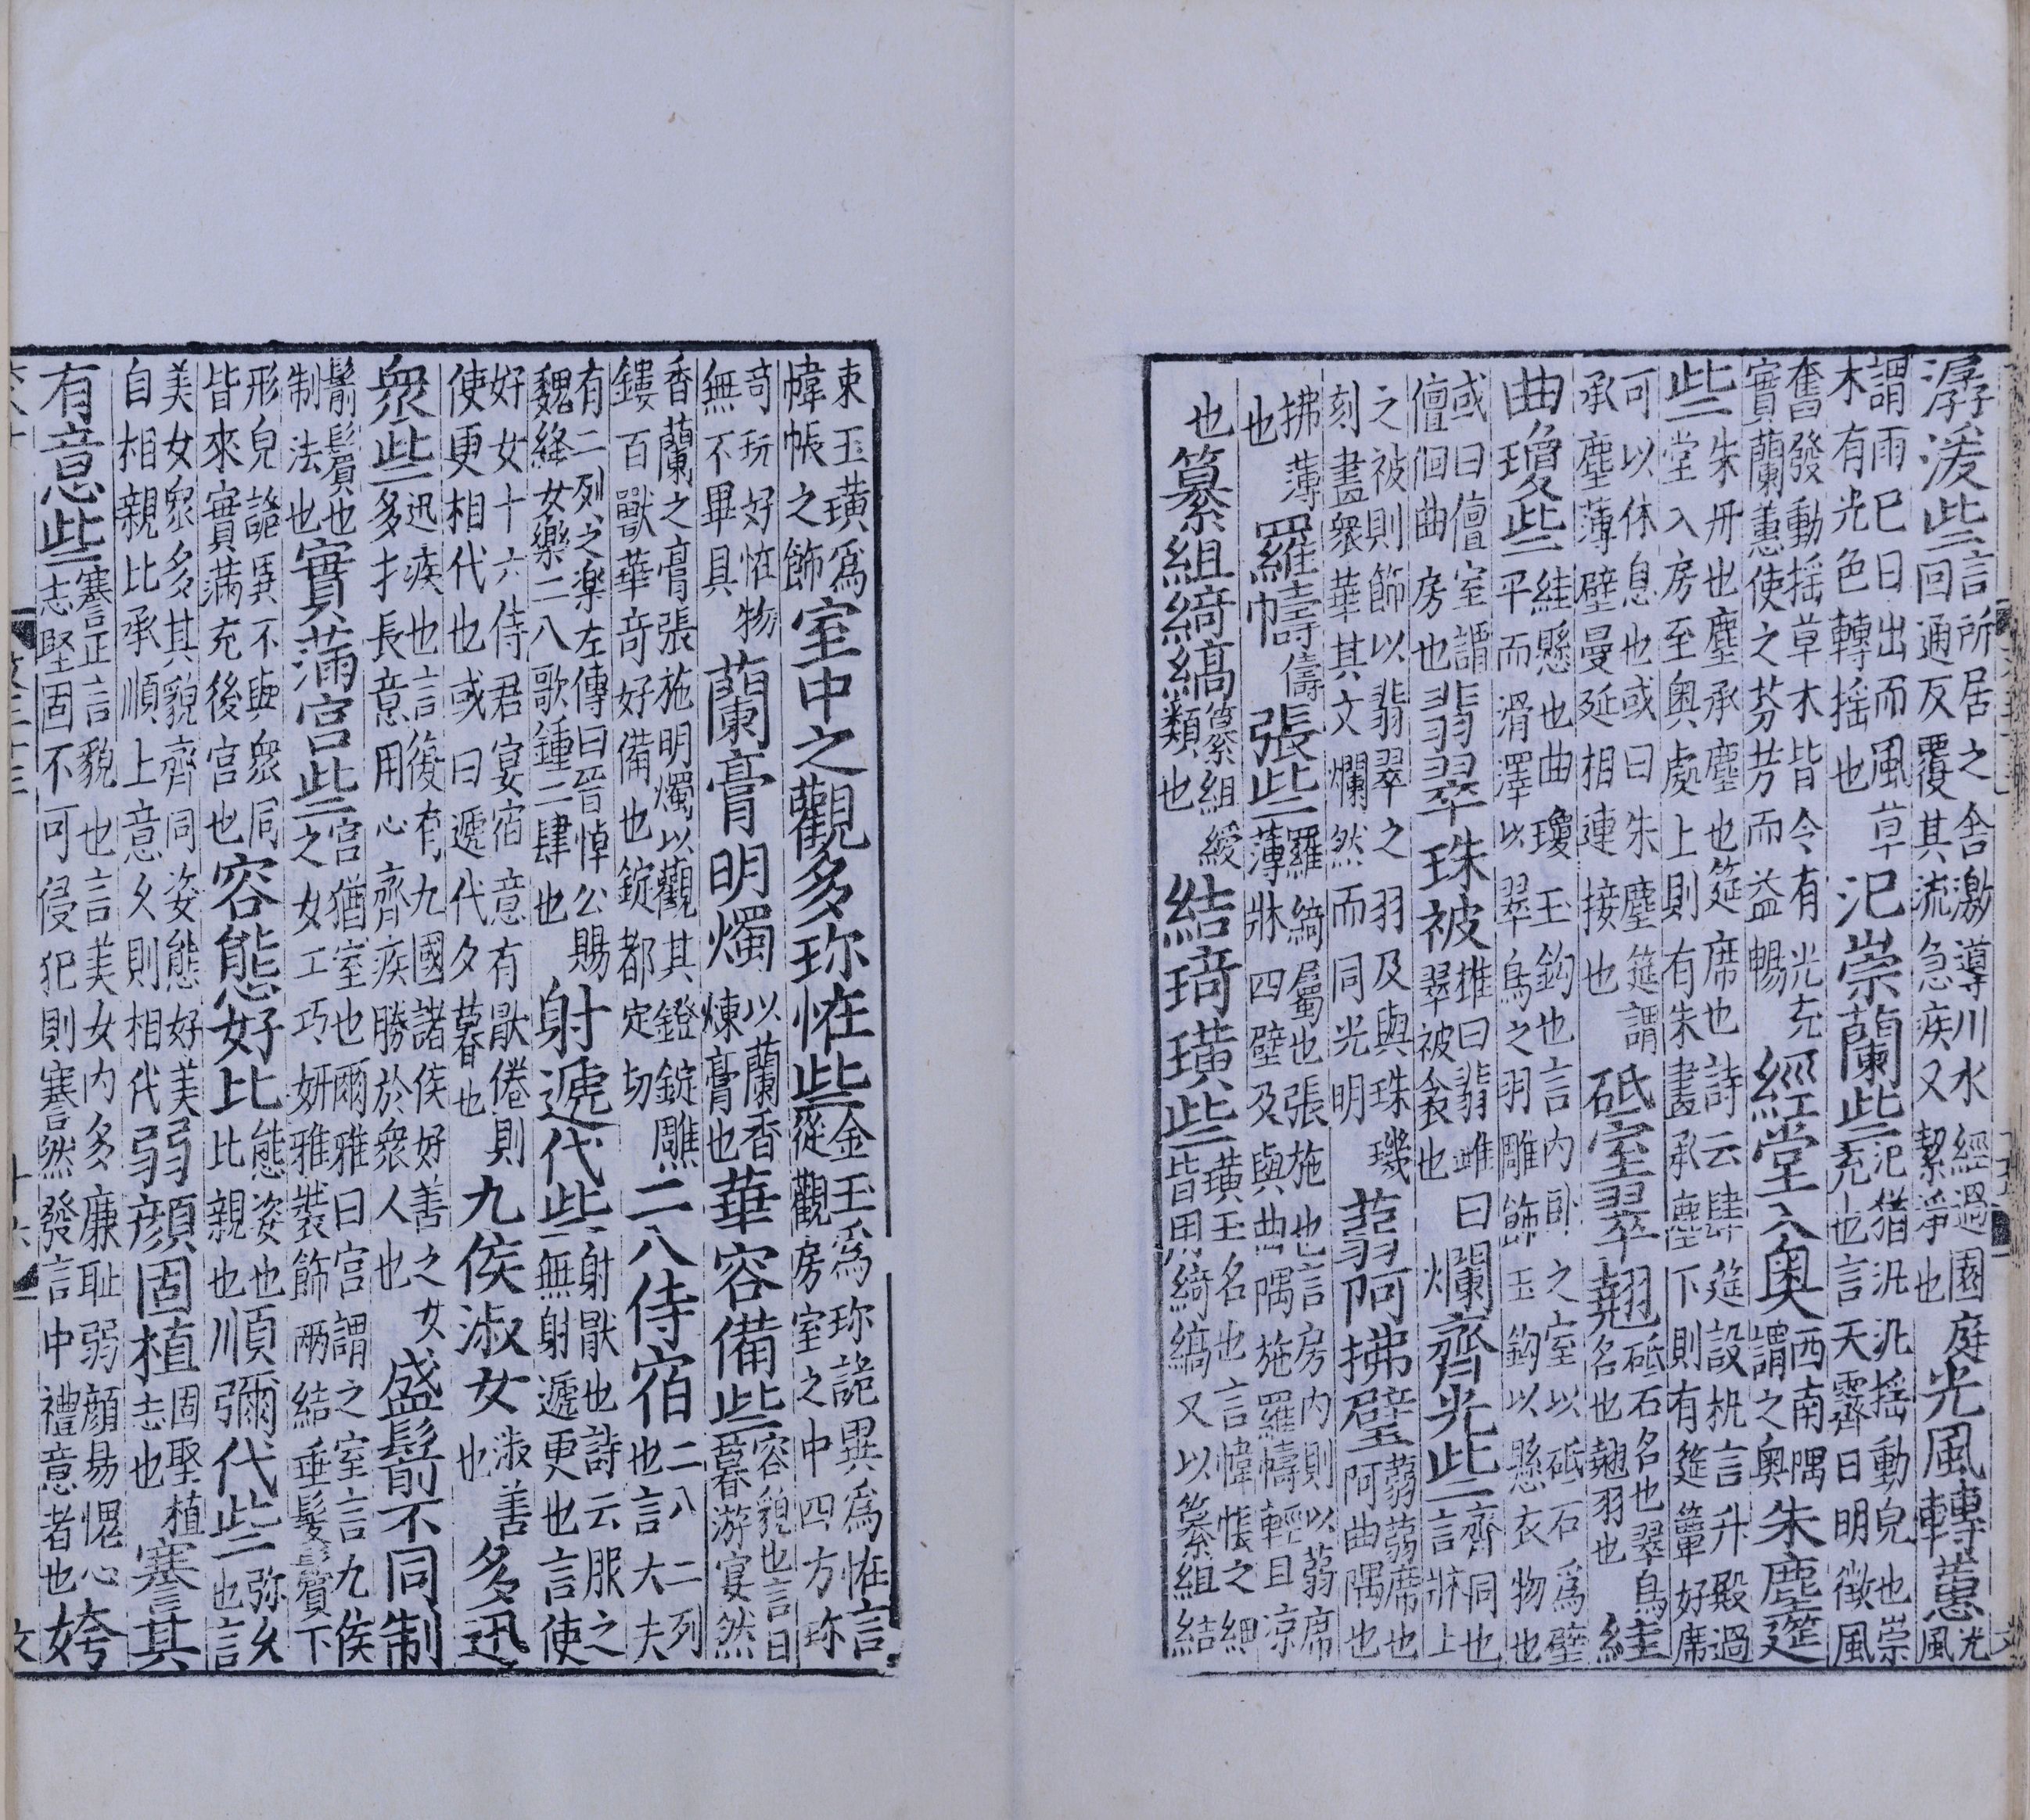 潺湲些言所居之舍激導川水經過園庭回通反覆其流急疾又絜淨也光風轉蕙光風
謂雨巳日出而風草木有光色轉搖也氾崇蘭些氾猶汎汎搖動皃也崇充也言天霽日明微風
奮發動搖草木皆令有光充實蘭蕙使之芬芳而益暢經堂入奧西南隅謂之奧朱塵筵
些朱丹也塵承塵也筵席也詩云肆筵設机言升殿過堂入房至奧處上則有朱畫承塵下則有筵簟好席
可以休息也或曰朱塵筵謂承塵薄壁曼延相連接也砥室翠翹砥石名也翠鳥名也翹羽也絓
曲瓊些絓懸也曲瓊玉鈎也言内卧之室以砥石為壁平而滑澤以翠鳥之羽雕飾玉鈎以懸衣物也
或曰儃室謂儃佪曲房也翡翠珠被雄曰翡雌曰翠被衾也爛齊光些齊同也言牀上
之被則飾以翡翠之羽及與珠璣刻畫衆華其文爛然而同光明蒻阿拂壁蒻蒻席也阿曲隅也
拂薄也羅幬儔張些羅綺屬也張施也言房内則以蒻席薄牀四壁及與曲隅施羅幬輕且凉
也纂組綺縞纂組綬類也結琦璜些璜玉名也言幃帳之細皆用綺縞又以纂組結
束玉璜為幃帳之飾室中之觀多珍恠些金玉為珍詭異為恠言從觀房室之中四方珍
奇玩好恠物無不畢具蘭膏明燭以蘭香煉膏也華容備些容貌也言日暮游宴然
香蘭之膏張施明燭以觀其鐙錠雕鏤百獸華奇好備也錠都定切二八侍宿二八二列也言大夫
有二列之楽左傳曰晉悼公賜魏絳女樂二八歌鍾二肆也射遞代些射猒也詩云服之無射遞更也言使
好女十六侍君宴宿意有猒倦則使更相代也或曰遞代夕暮也九侯淑女淑善也多迅
衆些迅疾也言復有九國諸侯好善之女多才長意用心齊疾勝於衆人也盛鬋不同制
鬋鬢也制法也實滿宫些宫猶室也爾雅曰宫謂之室言九侯之女工巧妍雅裝飾兩結垂髮鬢下
形皃詭異不與衆同皆來實滿充後宫也容態好比態姿也比親也順彌代些弥久也言
美女衆多其貌齊同姿態好美自相親比承順上意久則相代弱顔固植固堅植志也謇其
有意些謇正言貌也言美女内多廉耻弱顔易愧心志堅固不可侵犯則謇然發言中禮意者也姱